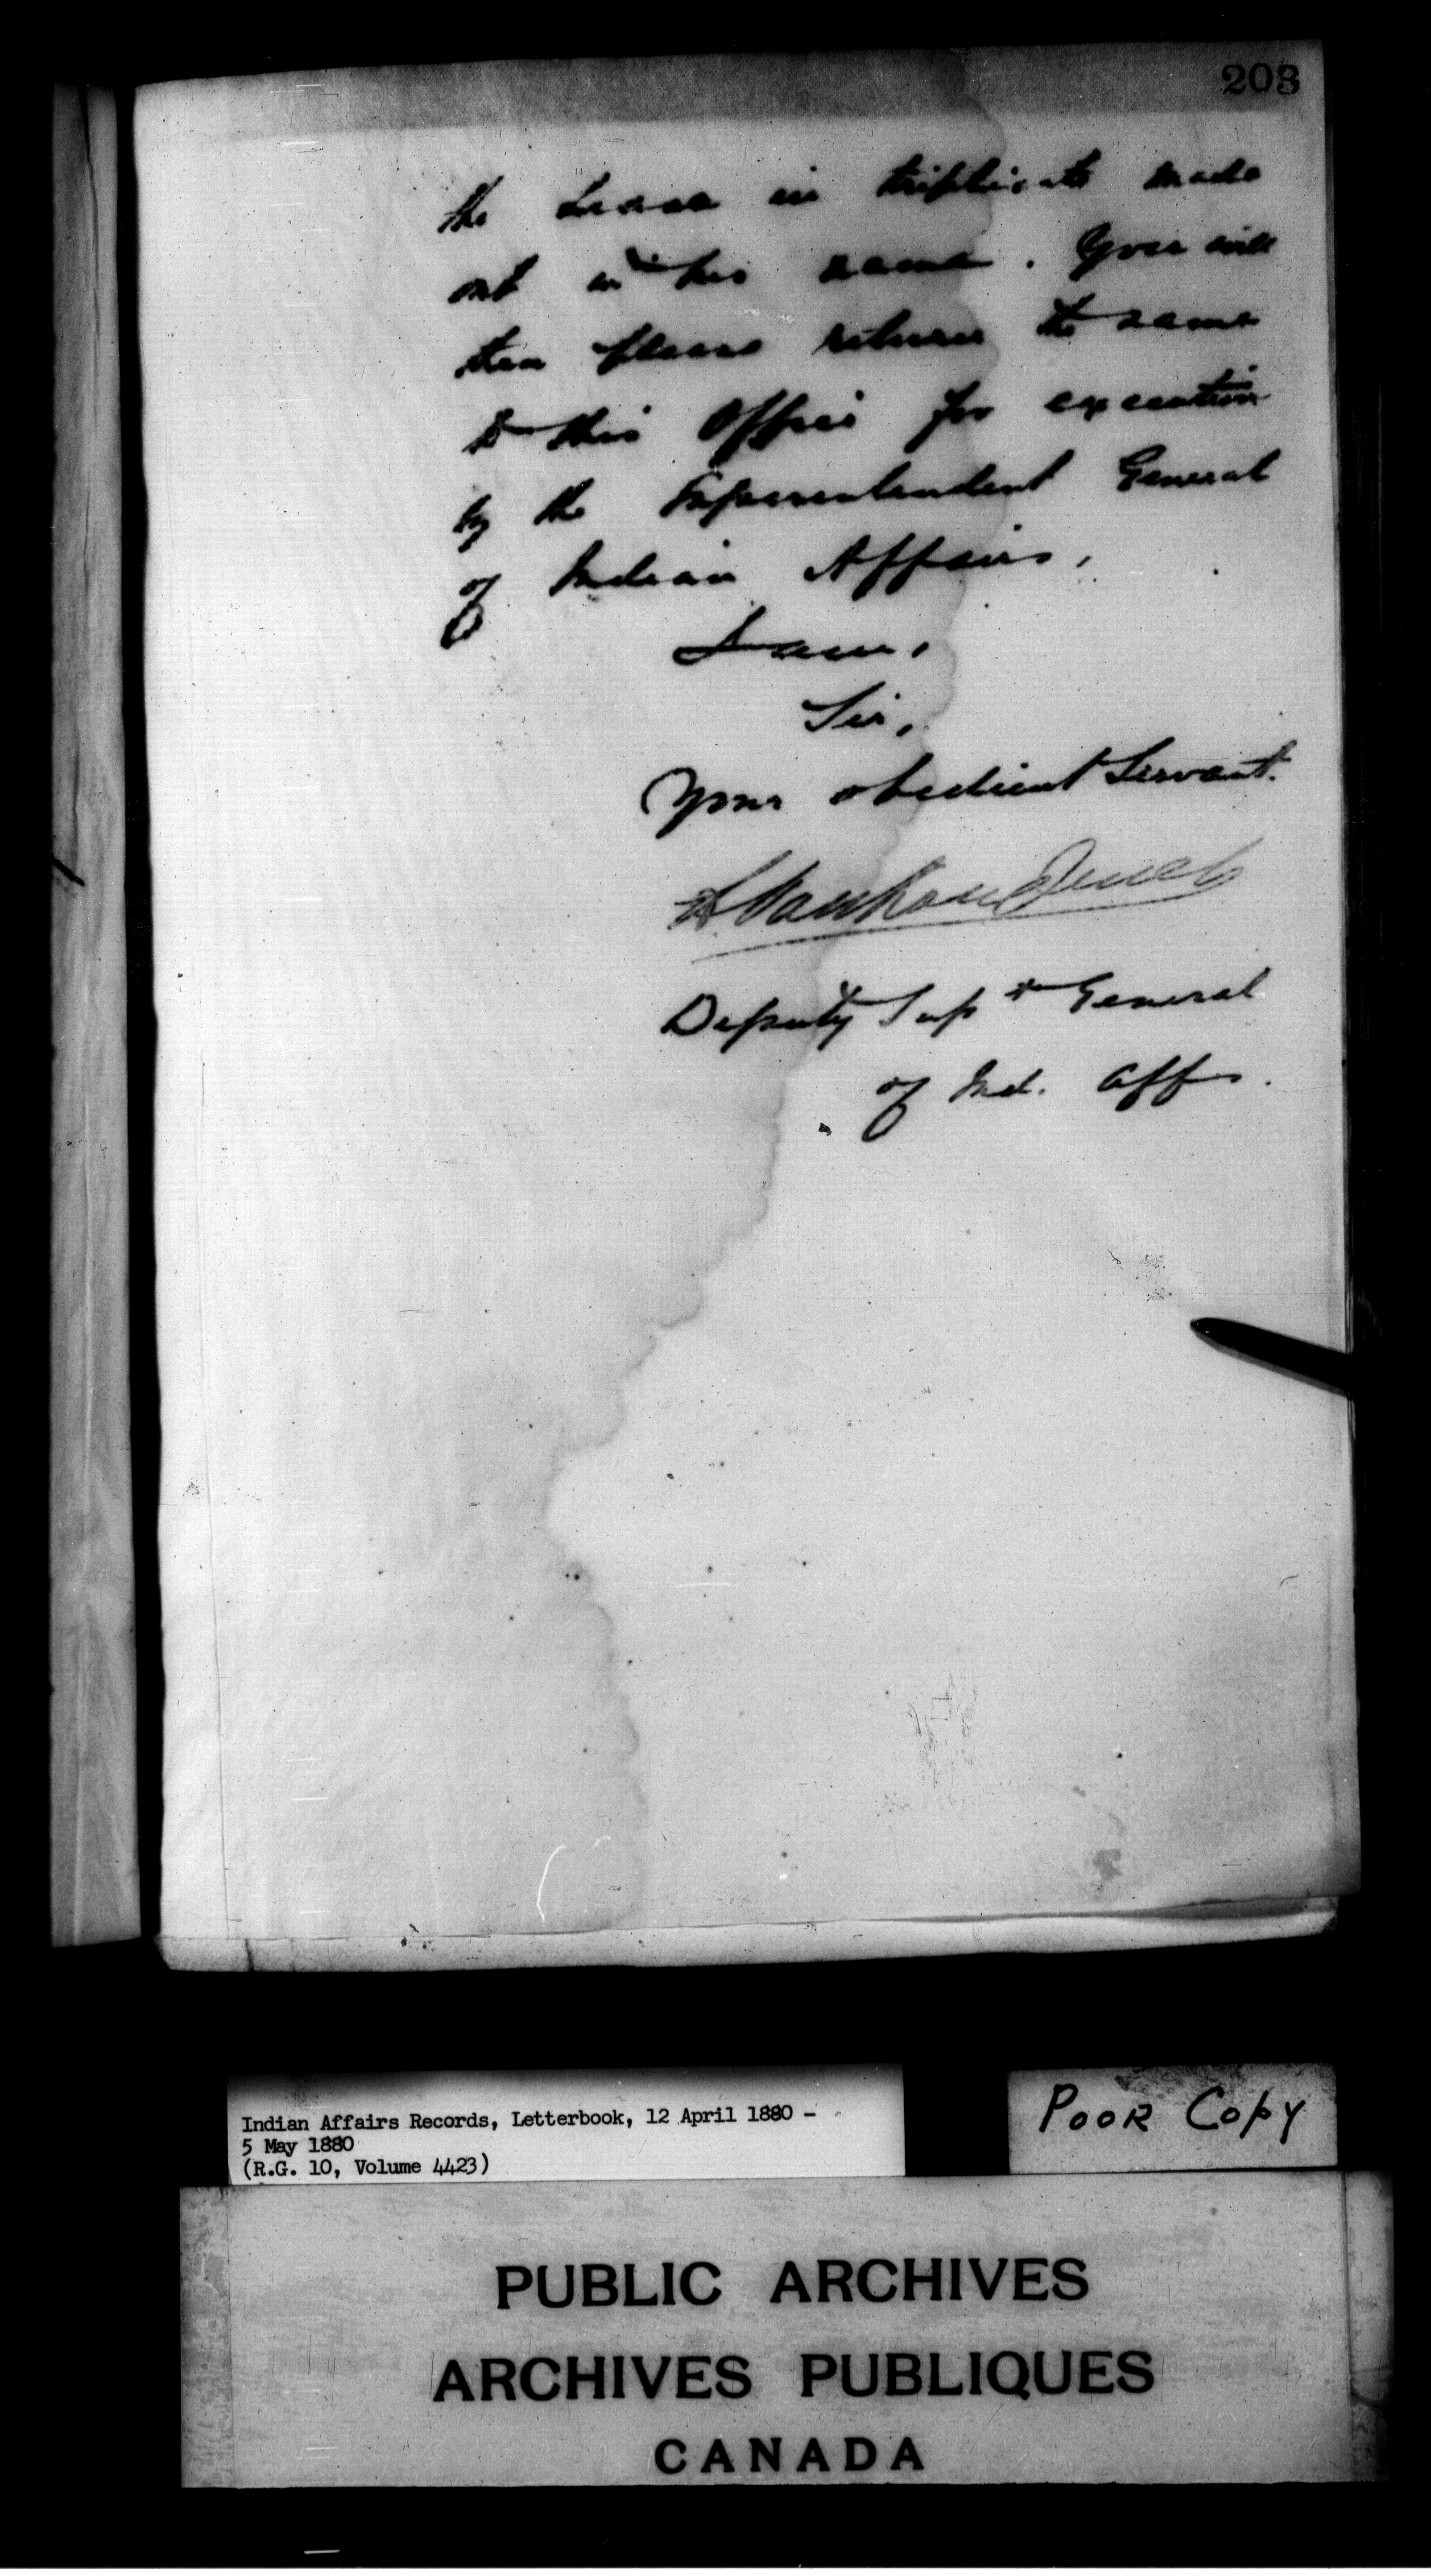 203
the Lease in triplicate made
out in his name. You will
then please return the same
to this Office for execution
by the Superintendent General
of Indian Affairs,
I am,
Sir,
Your obedient Servant.
L Vankoughnet
Deputy Supt General
of Ind. Affs.
Indian Affairs Records, Letterbook, 12 April 1880 -
5 May 1880
(R.G. 10, Volume 4423)
POOR COPY
PUBLIC ARCHIVES
ARCHIVES PUBLIQUES
CANADA